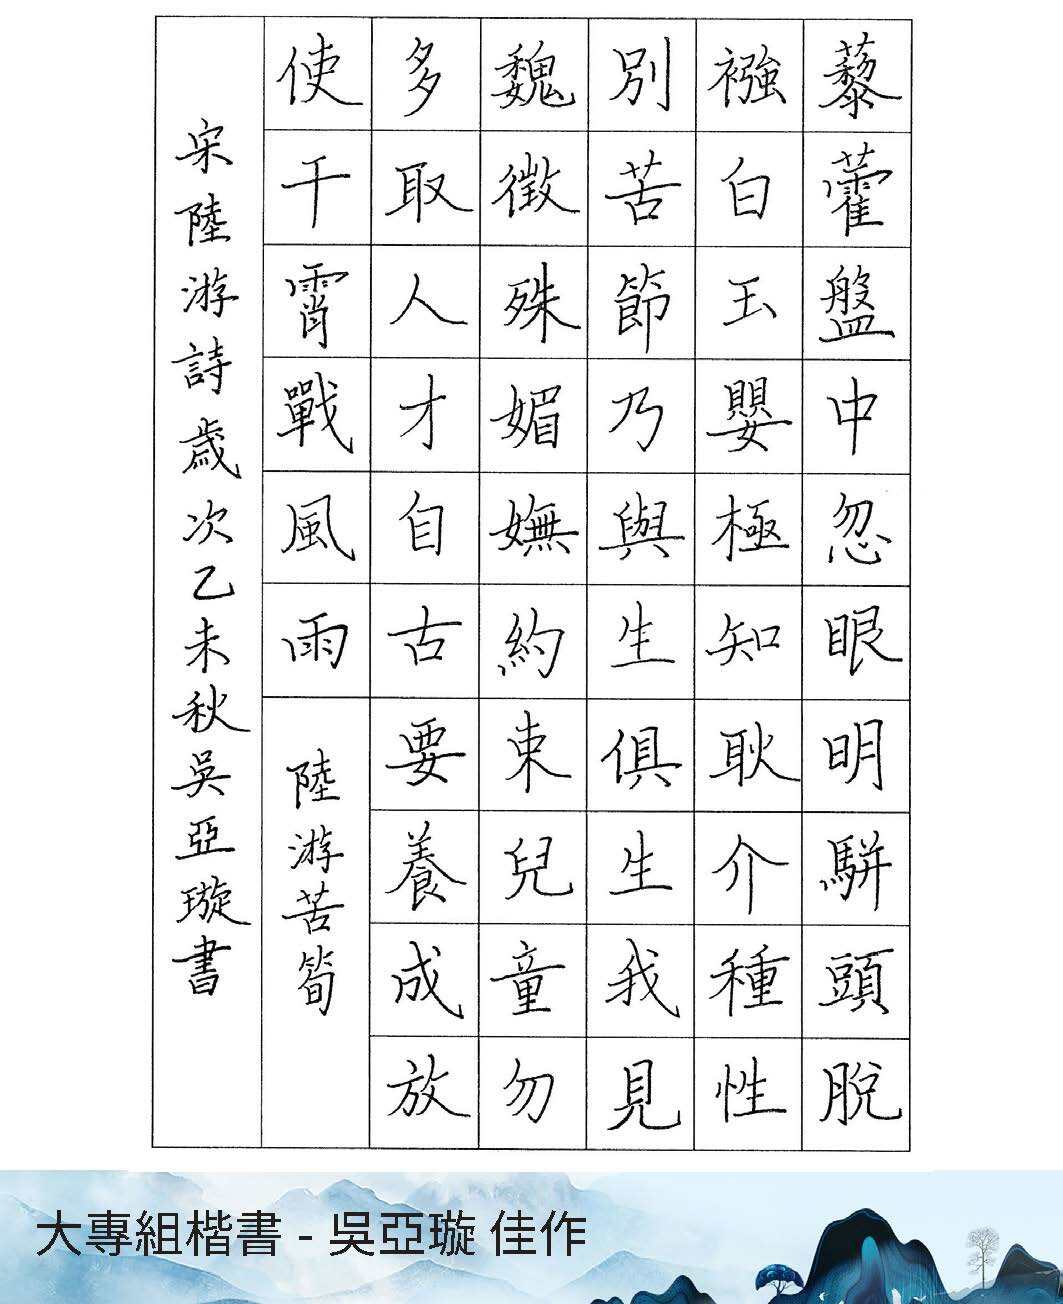 藜藿盤中忽眼明駢頭脫
襁白玉嬰極知耿介種性
別苦節乃與生俱生我見
魏徵殊媚嫵約束兒童勿
多取人才自古要養成放
使干霄戰風雨
陸游苦筍
宋陸游詩歲次乙未秋吳亞璇書
大專組楷書 - 吳亞璇 佳作